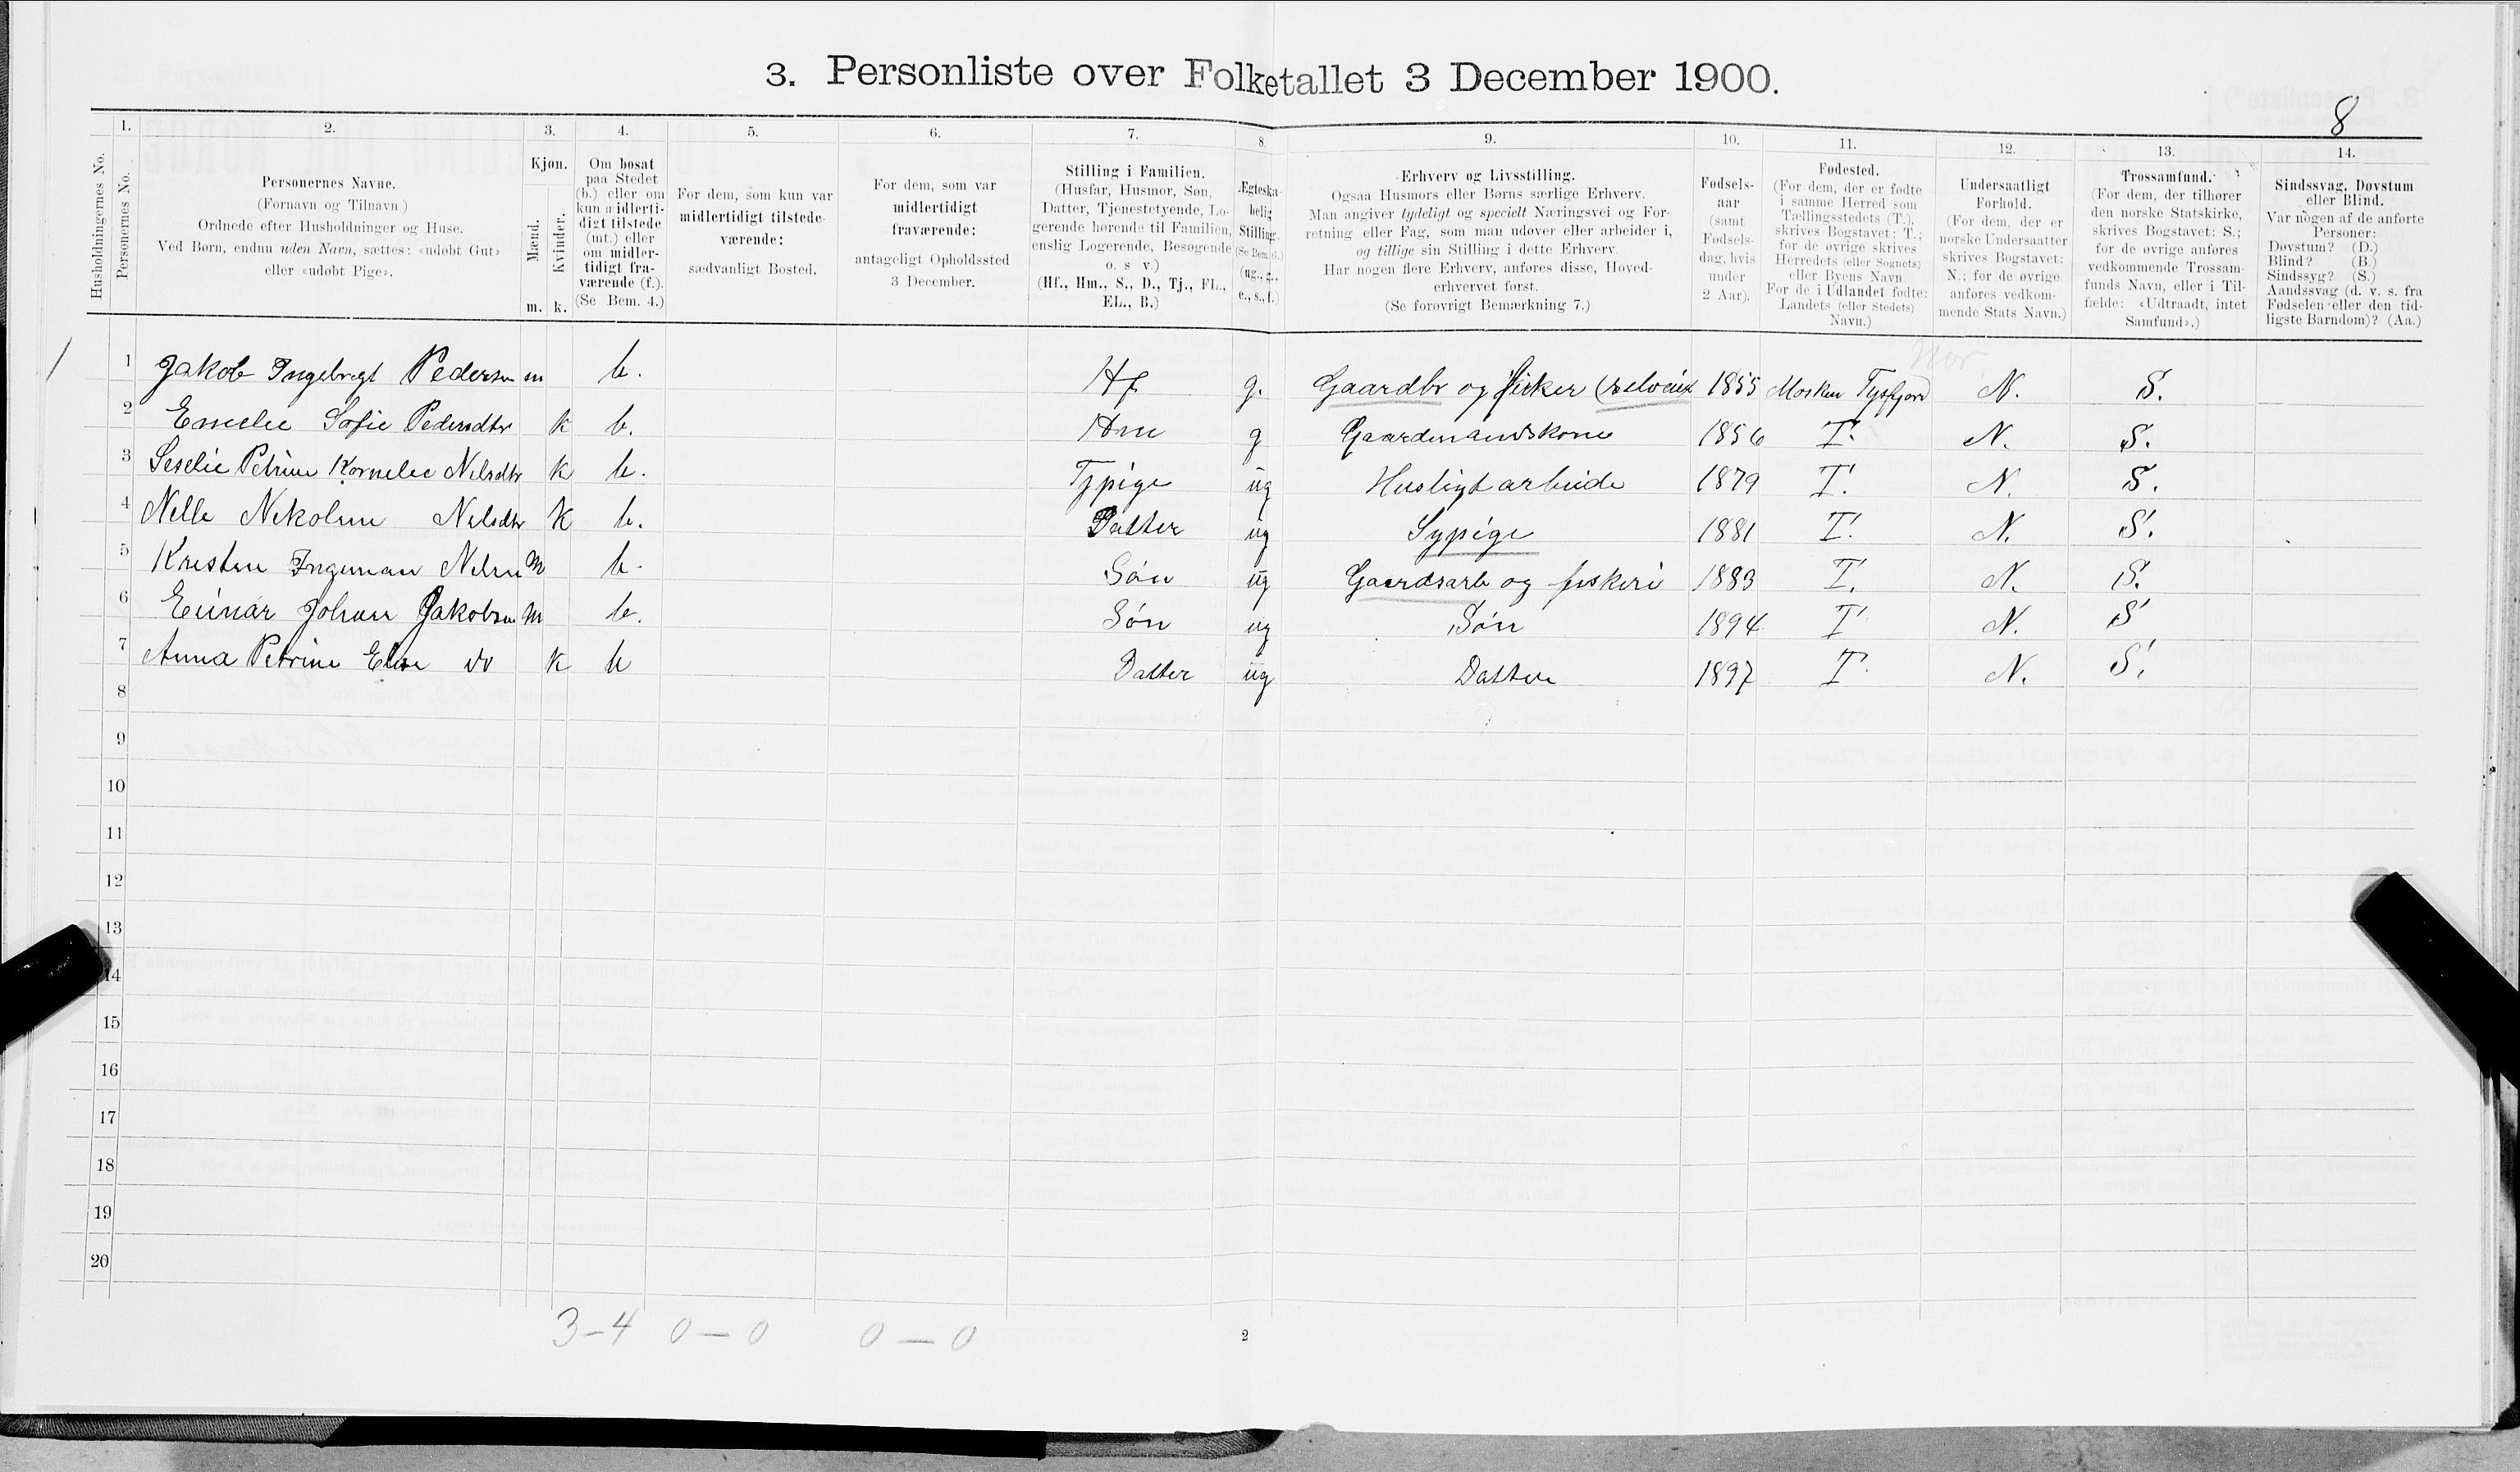 3. Personliste over Folketallet 3 December 1900.
8
1. 2. 3. 4. 5. 6. 7. 8. 9. 10. 11. 12. 13. 14.
Husholdningernes No.
Personernes No.
Personernes Navne.
(Fornavn og Tilnavn)
Ordnede efter Husholdninger og Huse.
Ved Børn, endnu uden Navn, sættes: «udøbt Gut»
eller «udøbt Pige».
Kjøn.
Mænd.
Kvinder.
m. k.
Om bosat
paa Stedet
(b.) eller om
kun midlerti-
digt tilstede
(mt.) eller
om midler-
tidigt fra-
værende (f.).
(Se Bem. 4.)
For dem, som kun var
midlertidigt tilstede-
værende:
sædvanligt Bosted.
For dem, som var
midlertidigt
fraværende:
antageligt Opholdssted
3 December.
Stilling i Familien.
(Husfar, Husmor, Søn,
Datter, Tjenestetyende, Lo-
gerende hørende til Familien,
enslig Logerende, Besøgende
o. s v.)
(Hf., Hm., S., D., Tj., FL.,
EL., B.)
Ægteska-
belig
Stilling.
(Se Bem. 6.)
(ug., g.,
e., s., f.)
Erhverv og Livsstilling.
Ogsaa Husmors eller Børns særlige Erhverv.
Man angiver tydeligt og specielt Næringsvei og For-
retning eller Fag, som man udøver eller arbeider i,
og tillige sin Stilling i dette Erhverv.
Har nogen flere Erhverv, anføres disse, Hoved-
erhvervet først.
(Se forøvrigt Bemærkning 7.)
Fødsels-
aar
(samt
Fødsels-
dag, hvis
under
2 Aar).
Fødested.
(For dem, der er fødte
i samme Herred som
Tællingsstedets (T.),
skrives Bogstavet: T.;
for de øvrige skrives
Herredets (eller Sognets)
eller Byens Navn
For de i Udlandet fødte:
Landets (eller Stedets)
Navn.)
Undersaatligt
Forhold.
(For dem, der er
norske Undersaatter
skrives Bogstavet:
N.; for de øvrige
anføres vedkom-
mende Stats Navn.)
Trossamfund.
(For dem, der tilhører
den norske Statskirke,
skrives Bogstavet: S.;
for de øvrige anføres
vedkommende Trossam-
funds Navn, eller i Til-
fælde: «Udtraadt, intet
Samfund».)
Sindssvag, Døvstum
eller Blind.
Var nogen af de anførte
Personer:
Døvstum? (D.)
Blind? (B.)
Sindssyg? (S.)
Aandssvag (d. v. s. fra
Fødselen eller den tid-
ligste Barndom)? (Aa.)
1 Jakob Ingebrigt Pedersen m b. Hf g. Gaardbr og fisker (selveier 1855 Morken Tysfjord N. S.
2 Emelie Sofie Pedersdtr k b. Hm g Gaardmandskone 1856 T. N. S.
3 Seselie Petrine Kornelie Nilsdtr k b. Tjpige ug Husligt arbeide 1879 T. N. S.
4 Nelle Nekoline Nilsdtr k b. Datter ug Sypige 1881 T. N. S.
5 Kristen Ingeman Nilsen m b. Søn ug Gaardsarb og fiskeri 1883 T. N. S.
6 Einar Johan Jakobsen m b. Søn ug Søn 1894 T N. S
7 Anna Petrine Elise do k b Datter ug Datter 1897 T. N. S.
8
9
10
11
12
13
14
15
16
17
18
19
20
3-4 0-0 0-0
2